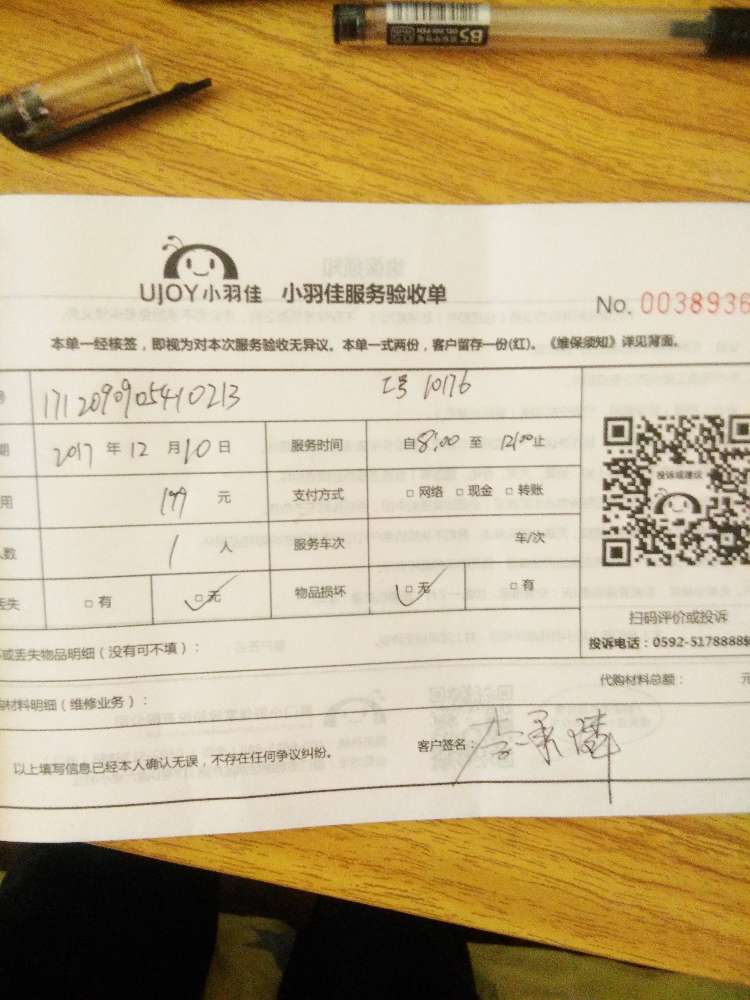 UJOY小羽佳 小羽佳服务验收单
No. 0038936
本单一经核签，即视为对本次服务验收无异议。本单一式两份，客户留存一份(红)。《维保须知》详见背面。
171209090541 0213 工号 10176
期 2017 年 12 月 10 日 服务时间 自 8:00 至 12:00 止
用 元 支付方式 □ 网络 □ 现金 □ 转账
投诉或建议
人数 1 人 服务车次 车/次
丢失 □ 有 □ 无 物品损坏 □ 无 □ 有
扫码评价或投诉
投诉电话：0592-5178888
或丢失物品明细（没有可不填）：
代购材料总额： 元
材料明细（维修业务）：
以上填写信息已经本人确认无误，不存在任何争议纠纷。
客户签名：